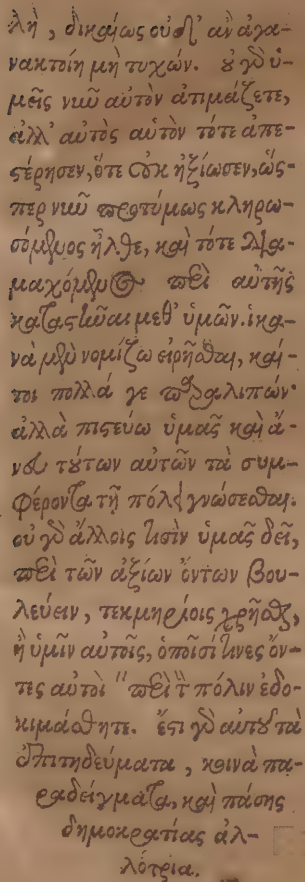 λὴ, δικαίως οὐδ' ἂν ἀγα-
νακτοίη μὴ τυχών. οὐ γὸ ὑ-
μεῖς νῦν αὐτὸν ἀτιμάζετε,
ἀλλ' αὐτὸς αὑτὸν τότε ἀπε-
στέρησεν, ὅτε οὐκ ἠξίωσεν, ὥσ-
περ νῦν προτύμως κληρω-
σόμενος ἦλθε, καὶ τότε δια-
μαχόμενος περὶ αὐτῆς
καταστῆναι μεθ' ὑμῶν. ἱκα-
νὰ μὲν νομίζω εἰρῆσθαι, καί-
τοι πολλά γε παραλιπών.
ἀλλὰ πιστεύω ὑμᾶς καὶ ἄ-
νευ τούτων αὐτῶν τὰ συμ-
φέροντα τῇ πόλει γνώσεσθαι.
οὐ γὸ ἄλλοις τισὶν ὑμᾶς δεῖ,
περὶ τῶν ἀξίων ὄντων βου-
λεύειν, τεκμηρίοις χρῆσθαι,
ἢ ὑμῖν αὐτοῖς, ὁποῖσί τινες ὄν-
τες αὐτοὶ "περὶ τ πόλιν ἐδο-
κιμάσθητε. ἔστι γὸ αὐτοῦ τὰ
ἐπιτηδεύματα, κοινὰ πα-
ραδείγματα, καὶ πάσης
δημοκρατίας ἀλ-
λότρια.